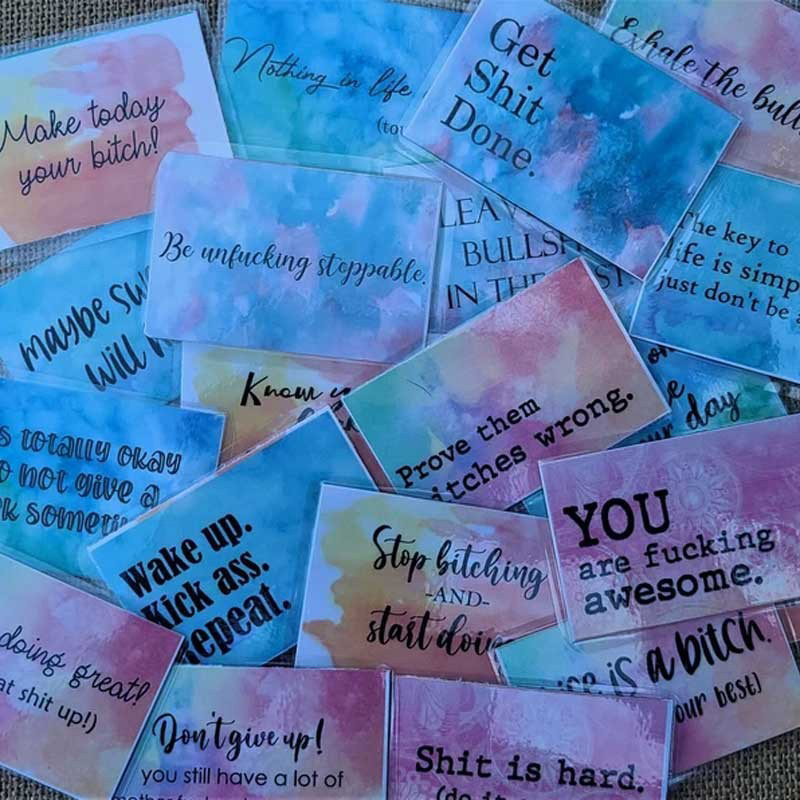 Make today
your bitch!
Nothing in life
Get
Shit
Done.
Exhale the
Be unfucking stoppable.
BULLSH
IN THE
The key to
life is simp
just don't be
maybe sw
will
Know
Prove them
itches wrong.
day
s totally okay
o not give a
Wake up.
Kick ass.
Repeat.
Stop bitching
-AND-
start doin
YOU
are fucking
awesome.
doing great!
at shit up!)
is a bitch.
our best)
Don't give up!
you still have a lot of
Shit is hard.
(do it